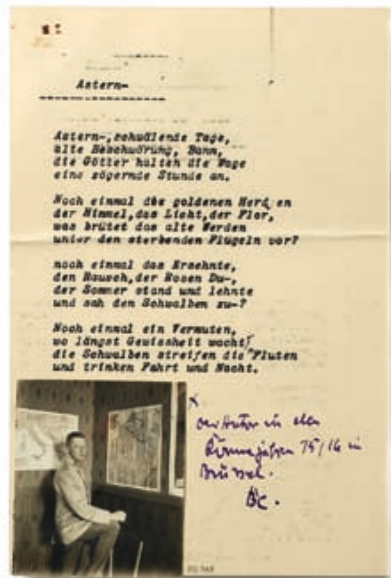 Astern-
Astern-,schwälende Tage,
alte Beschwörung, Bann,
die Götter halten die Wage
eine zögernde Stunde an.
Noch einmal die goldenen Herden
der Himmel,das Licht,der Flor,
was brütet das alte Werden
unter den sterbenden Flügeln vor?
noch einmal das Ersehnte,
den Rausch,der Rosen Du-,
der Sommer stand und lehnte
und sah den Schwalben zu-?
Noch einmal ein Vermuten,
wo längst Gewissheit wacht:
die Schwalben streifen die Fluten
und trinken Fahrt und Nacht.
x
der Autor in den
Rönnejahren 15/16 in
Brüssel.
Be.